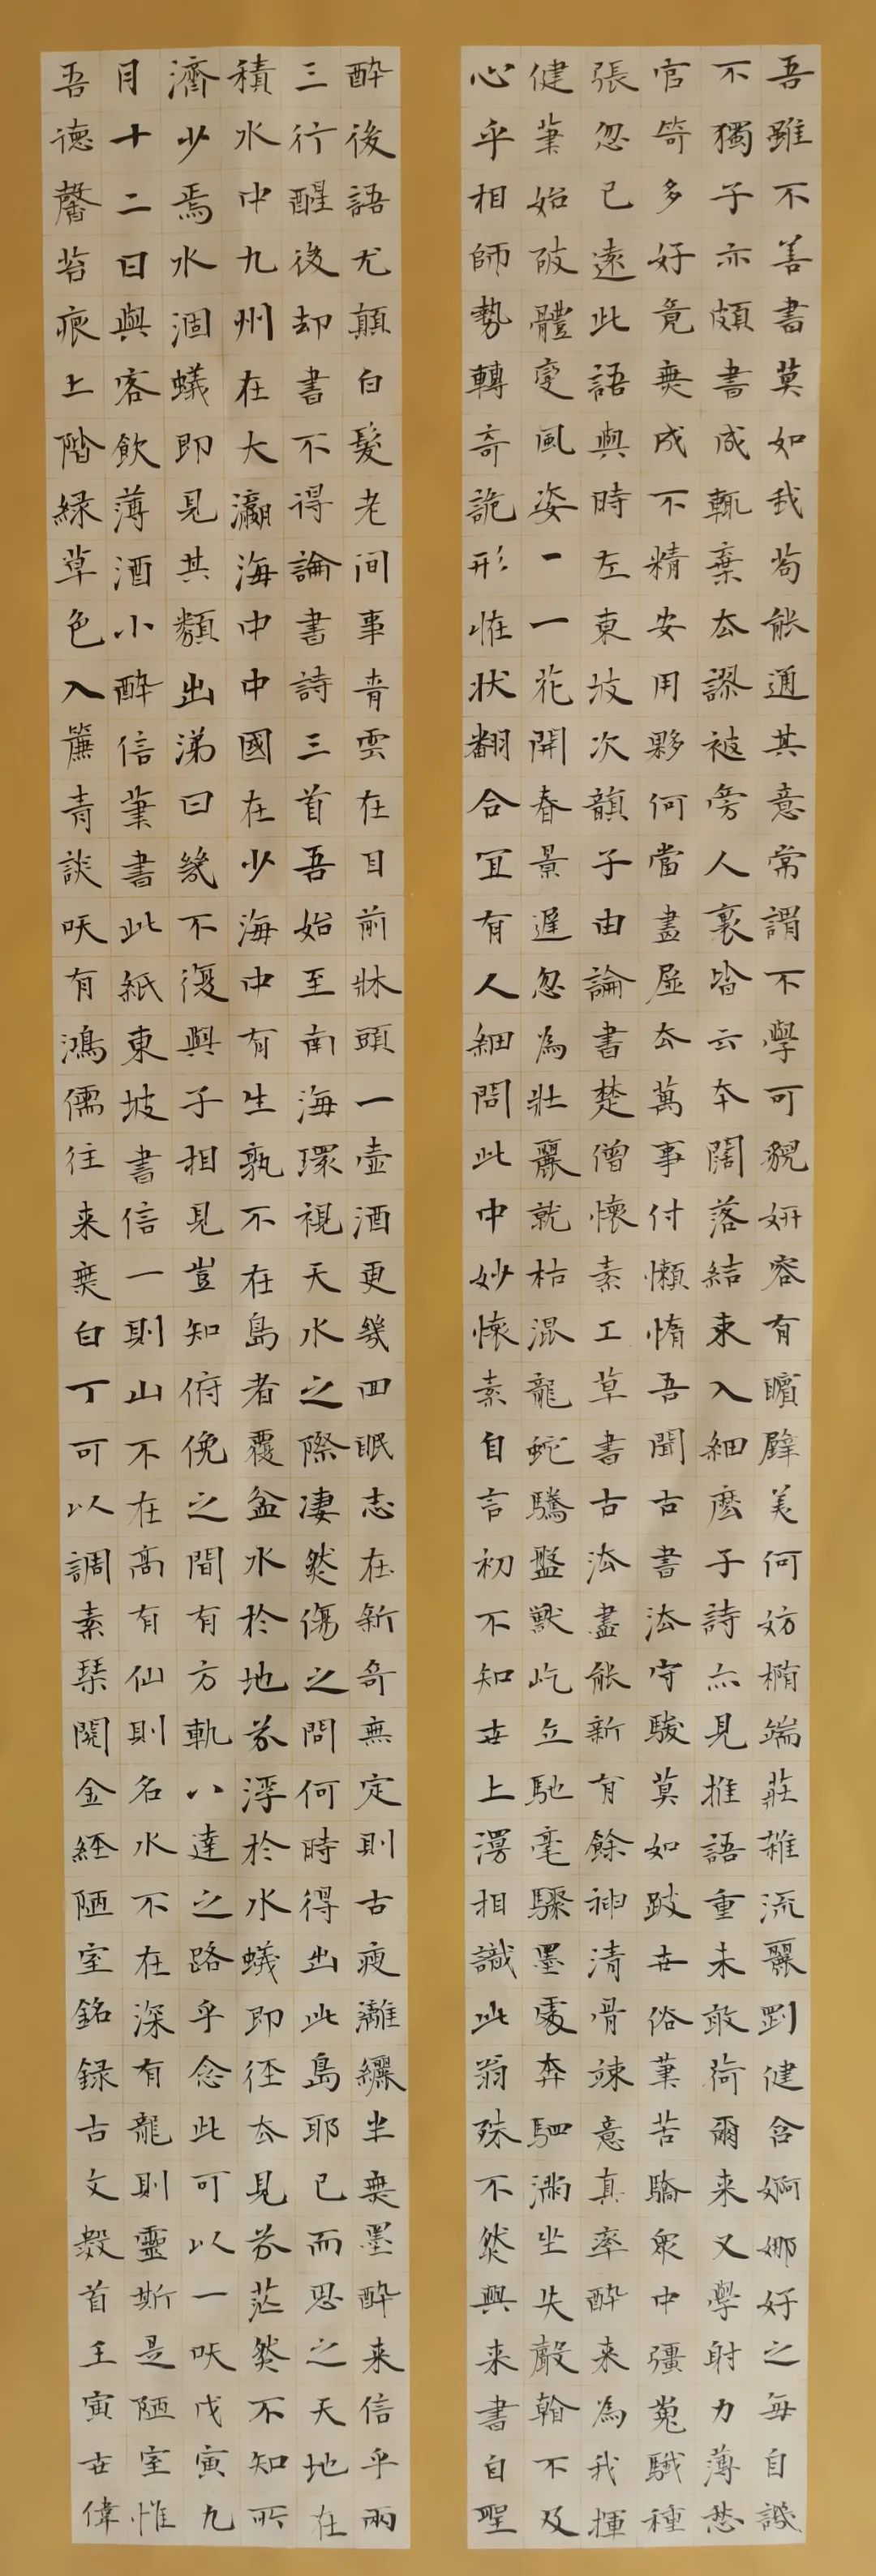 吾雖不善書莫如我苟能通其意常謂不學可貌妍容有矉璧美何妨橢端莊雜流麗剛健含婀娜好之每自譏
不獨子亦頗書成輒棄去謬被旁人裹皆云本闊落結束入細麽子詩亦見推語重未敢荷爾来又學射力薄愁
官笴多好竟無成不精安用夥何當盡屏去萬事付懶惰吾聞古書法守駿莫如跛世俗筆苦驕衆中彊嵬騀種
張忽已遠此語與時左東坡次韻子由論書楚僧懷素工草書古法盡能新有餘神清骨竦意真率醉来為我揮
健筆始破體變風姿一一花開春景遲忽為壯麗就枯混龍蛇騰盤獸屹立馳毫驟墨處奔駟滿坐失聲翰不及
心乎相師勢轉奇詭形怪狀翻合宜有人細問此中妙懷素自言初不知世上漫相識此翁殊不然興来書自聖
醉後語尤顛白髮老间事青雲在目前牀頭一壺酒更幾回眠志在新奇無定則古瘦灕纚半無墨醉来信乎兩
三行醒後却書不得論書詩三首吾始至南海環視天水之際凄然傷之問何時得出此島耶已而思之天地在
積水中九州在大瀛海中中國在少海中有生孰不在島者覆盆水於地芥浮於水蟻即徑去見芥茫然不知所
濟少焉水涸蟻即見其類出涕曰幾不復與子相見豈知俯俛之間有方軌八達之路乎念此可以一咲戊寅九
月十二日與客飲薄酒小醉信筆書此紙東坡書信一則山不在高有仙則名水不在深有龍則靈斯是陋室惟
吾德馨苔痕上階緑草色入簾青談咲有鴻儒往来無白丁可以調素琴閱金經陋室銘録古文數首壬寅世偉